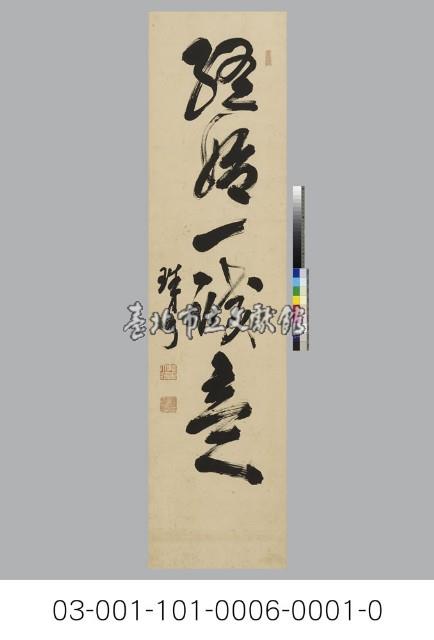 終始一誠意
珠
臺北市立文獻館
03-001-101-0006-0001-0